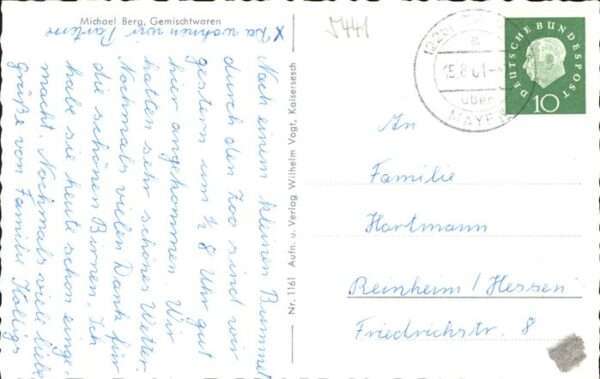 Michael Berg, Gemischtwaren
X Da wohnen wir
Nach einem kleinen Bummel
durch den Zoo sind wir
gestern um ½ 8 Uhr gut
hier angekommen. Wir
hatten sehr schönes Wetter.
Nochmals vielen Dank für
die schönen Birnen. Ich
habe sie heute schon einge-
macht. Nochmals viele liebe
Grüße von Familie
Nr. 1161 Aufn. u. Verlag Wilhelm Vogt, Kaisersesch
5441
15.8.61
über
MAYEN
DEUTSCHE BUNDESPOST
10
An
Familie
Hartmann
Reinheim/Hessen
Friedrichstr. 8